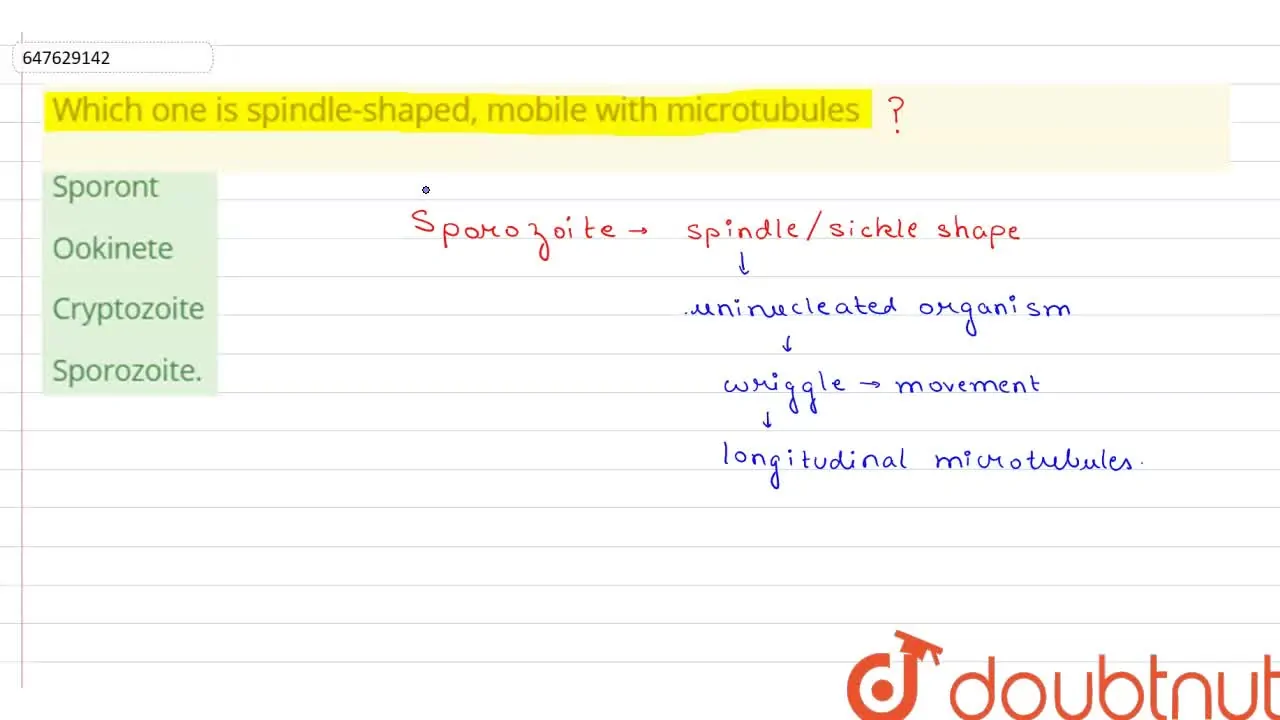 647629142
Which one is spindle-shaped, mobile with microtubules ?
Sporont
Ookinete
Cryptozoite
Sporozoite.
Sporozoite → spindle/sickle shape
↓
uninucleated organism
↓
wriggle → movement
↓
longitudinal microtubules.
doubtnut